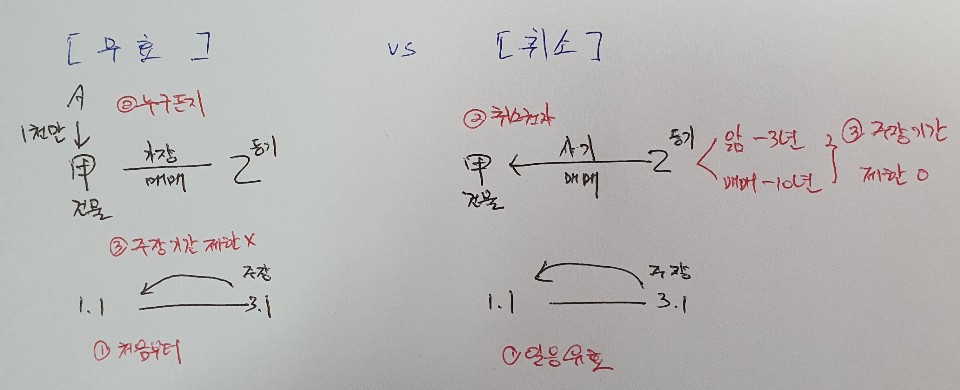 [무효] vs [취소]
A ②누구든지
1천만
甲 가장 乙 등기
매매
건물
③ 주장기간 제한 X
주장
1.1 3.1
① 처음부터
② 취소권자
甲 사기 乙 등기
매매
건물
앎 - 3년
매매 - 10년
③ 주장기간
제한 O
주장
1.1 3.1
① 일응 유효